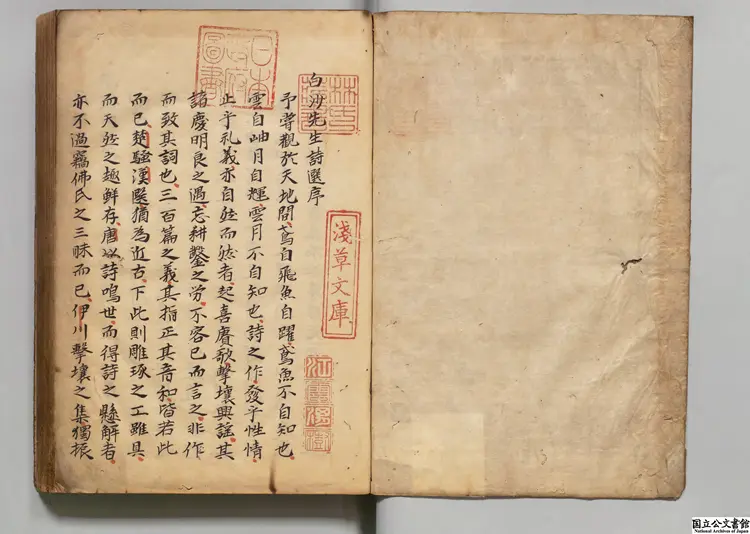 白沙先生詩選序
予嘗觀於天地間鳶自飛魚自躍鳶魚不自知也
雲自岫月自輝雲月不自知也詩之作發乎性情
止乎礼義亦自然而然者起喜賡歌擊壤興謡其
諸慶明良之遇忘耕鑿之勞不容已而言之非作
而致其詞也三百篇之義其指正其音和皆若此
而已楚騷漢魏猶為近古下此則雕琢之工雖具
而天然之趣鮮存唐以詩鳴世而得詩之懸解者
亦不過竊佛氏之三昧而已伊川擊壤之集獨振
林氏藏書
淺草文庫
江雲渭樹
日本政府圖書
国立公文書館
National Archives of Japan